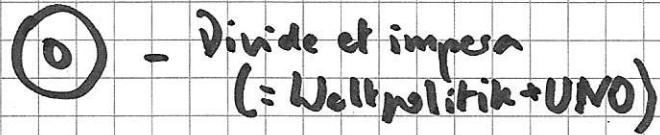 0 - Divide et impera
(= Weltpolitik + UNO)